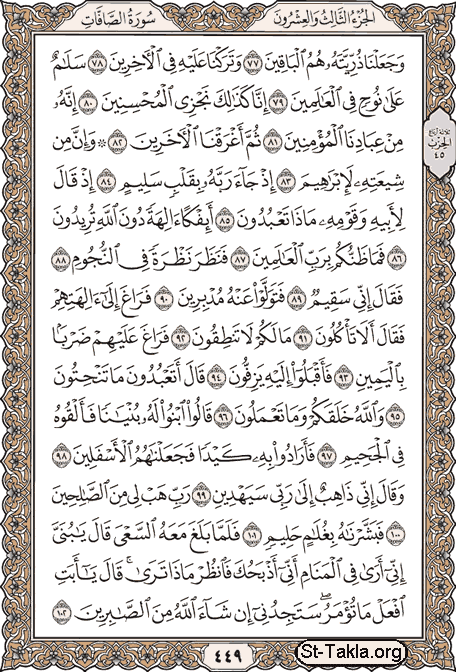 سُورَةُ الصَّافَّاتِ
الجُزْءُ الثَّالِثُ وَالعِشْرُونَ
وَجَعَلْنَا ذُرِّيَّتَهُۥ هُمُ ٱلْبَاقِينَ ٧٧ وَتَرَكْنَا عَلَيْهِ فِى ٱلْءَاخِرِينَ ٧٨ سَلَٰمٌ
عَلَىٰ نُوحٍ فِى ٱلْعَٰلَمِينَ ٧٩ إِنَّا كَذَٰلِكَ نَجْزِى ٱلْمُحْسِنِينَ ٨٠ إِنَّهُۥ
مِنْ عِبَادِنَا ٱلْمُؤْمِنِينَ ٨١ ثُمَّ أَغْرَقْنَا ٱلْءَاخَرِينَ ٨٢ ۞ وَإِنَّ مِن
شِيعَتِهِۦ لَإِبْرَٰهِيمَ ٨٣ إِذْ جَآءَ رَبَّهُۥ بِقَلْبٍ سَلِيمٍ ٨٤ إِذْ قَالَ
لِأَبِيهِ وَقَوْمِهِۦ مَاذَا تَعْبُدُونَ ٨٥ أَئِفْكًا ءَالِهَةً دُونَ ٱللَّهِ تُرِيدُونَ
٨٦ فَمَا ظَنُّكُم بِرَبِّ ٱلْعَٰلَمِينَ ٨٧ فَنَظَرَ نَظْرَةً فِى ٱلنُّجُومِ ٨٨
فَقَالَ إِنِّى سَقِيمٌ ٨٩ فَتَوَلَّوْا۟ عَنْهُ مُدْبِرِينَ ٩٠ فَرَاغَ إِلَىٰٓ ءَالِهَتِهِمْ
فَقَالَ أَلَا تَأْكُلُونَ ٩١ مَا لَكُمْ لَا تَنطِقُونَ ٩٢ فَرَاغَ عَلَيْهِمْ ضَرْبًۢا
بِٱلْيَمِينِ ٩٣ فَأَقْبَلُوٓا۟ إِلَيْهِ يَزِفُّونَ ٩٤ قَالَ أَتَعْبُدُونَ مَا تَنْحِتُونَ
٩٥ وَٱللَّهُ خَلَقَكُمْ وَمَا تَعْمَلُونَ ٩٦ قَالُوا۟ ٱبْنُوا۟ لَهُۥ بُنْيَٰنًا فَأَلْقُوهُ
فِى ٱلْجَحِيمِ ٩٧ فَأَرَادُوا۟ بِهِۦ كَيْدًا فَجَعَلْنَٰهُمُ ٱلْأَسْفَلِينَ ٩٨
وَقَالَ إِنِّى ذَاهِبٌ إِلَىٰ رَبِّى سَيَهْدِينِ ٩٩ رَبِّ هَبْ لِى مِنَ ٱلصَّٰلِحِينَ
١٠٠ فَبَشَّرْنَٰهُ بِغُلَٰمٍ حَلِيمٍ ١٠١ فَلَمَّا بَلَغَ مَعَهُ ٱلسَّعْىَ قَالَ يَٰبُنَىَّ
إِنِّىٓ أَرَىٰ فِى ٱلْمَنَامِ أَنِّىٓ أَذْبَحُكَ فَٱنظُرْ مَاذَا تَرَىٰ ۚ قَالَ يَٰٓأَبَتِ
ٱفْعَلْ مَا تُؤْمَرُ ۖ سَتَجِدُنِىٓ إِن شَآءَ ٱللَّهُ مِنَ ٱلصَّٰبِرِينَ ١٠٢
ثلاثة أرباع
الحزب
٤٥
٤٤٩
St-Takla.org